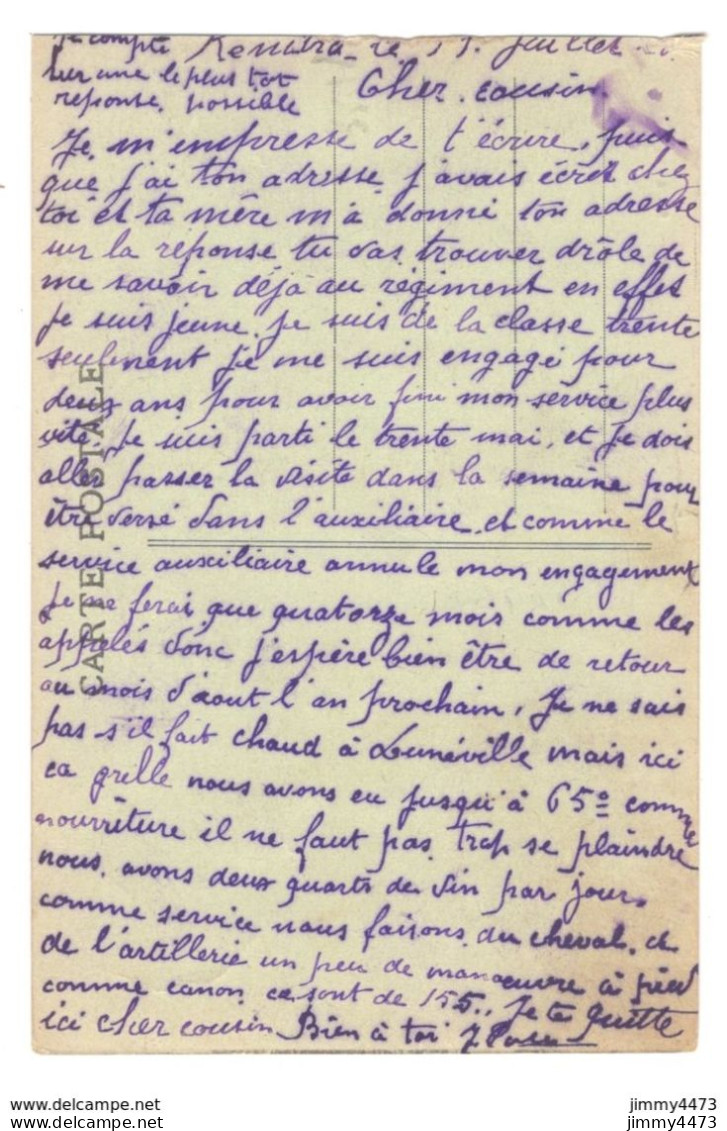 Je compte Kenitra le Juillet
sur une le plus tot
reponse possible
Cher cousin
Je m'empresse de t'écrire, puis
que j'ai ton adresse j'avais écrit chez
toi et ta mère m'a donné ton adresse
sur la réponse tu vas trouver drôle de
me savoir déjà au régiment en effet
je suis jeune, je suis de la classe trente
seulement je me suis engagé pour
deux ans pour avoir fini mon service plus
vite. Je suis parti le trente mai, et je dois
aller passer la visite dans la semaine pour
être versé dans l'auxiliaire, et comme le
service auxiliaire annule mon engagement
je ne ferai que quatorze mois comme les
appelés donc j'espère bien être de retour
au mois d'aout l'an prochain, Je ne sais
pas s'il fait chaud à Lunéville mais ici
ca grille nous avons eu jusqu'à 65° comme
nourriture il ne faut pas trop se plaindre
nous, avons deux quarts de vin par jour.
comme service nous faisons du cheval, et
de l'artillerie un peu de manoeuvre à pied
comme canon ce sont de 155., Je te quitte
ici cher cousin Bien à toi
CARTE POSTALE
https://www.delcampe.net/en_GB/collectibles/
https://www.delcampe.net/en_GB/collectibles/
jimmy4473
jimmy4473